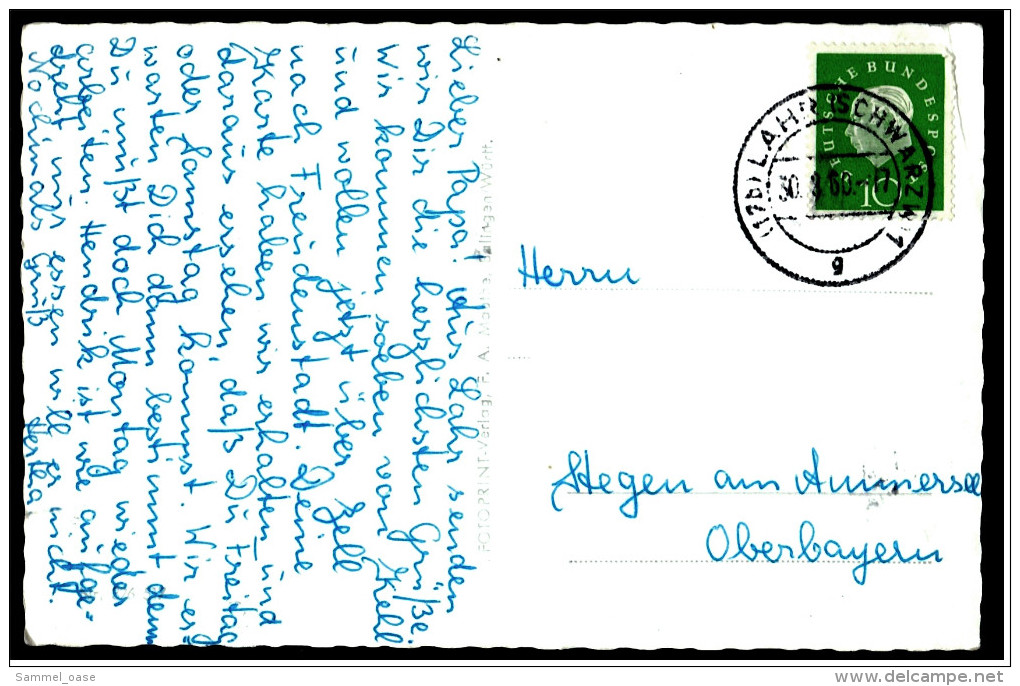 Lieber Papa! Aus Lahr senden
wir Dir die herzlichsten Grüße.
Wir kommen soeben von Kehl
und wollen jetzt über Zell
nach Freudenstadt. Deine
Karte haben wir erhalten und
daraus ersehen, daß Du Freitag
oder Samstag kommst. Wir er=
warten Dich dann bestimmt denn
Du mußt doch Montag wieder
arbeiten. Hendrik ist wie aufge=
dreht uns essen will er nicht.
Nochmals Gruß
Hertha
FOTOPRINT-Verlag, F. A.
DEUTSCHE BUNDESPOST
10
(17b) LAHR (SCHWARZW) 1
30. 8. 60. - 17
g
Herrn
Stegen am Ammersee
Oberbayern
Sammel_oase
www.delcampe.net